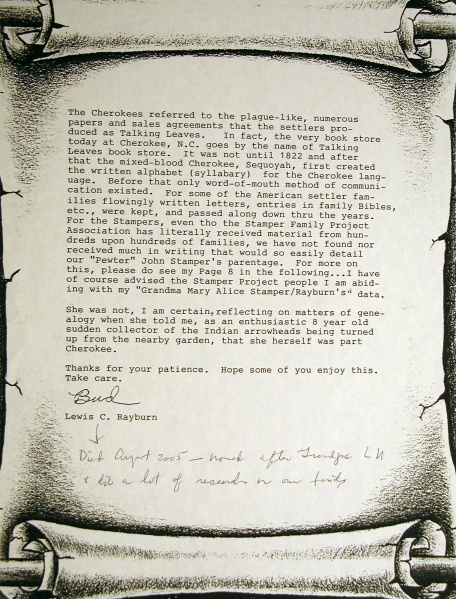 The Cherokees referred to the plague-like, numerous
papers and sales agreements that the settlers pro-
duced as Talking Leaves. In fact, the very book store
today at Cherokee, N.C. goes by the name of Talking
Leaves book store. It was not until 1822 and after
that the mixed-blood Cherokee, Sequoyah, first created
the written alphabet (syllabary) for the Cherokee lang-
uage. Before that only word-of-mouth method of communi-
cation existed. For some of the American settler fam-
ilies flowingly written letters, entries in family Bibles,
etc., were kept, and passed along down thru the years.
For the Stampers, even tho the Stamper Family Project
Association has literally received material from hun-
dreds upon hundreds of families, we have not found nor
received much in writing that would so easily detail
our "Pewter" John Stamper's parentage. For more on
this, please do see my Page 8 in the following...I have
of course advised the Stamper Project people I am abid-
ing with my "Grandma Mary Alice Stamper/Rayburn's" data.
She was not, I am certain, reflecting on matters of gene-
alogy when she told me, as an enthusiastic 8 year old
sudden collector of the Indian arrowheads being turned
up from the nearby garden, that she herself was part
Cherokee.
Thanks for your patience. Hope some of you enjoy this.
Take care.
Bud
Lewis C. Rayburn
Died August 2005 — named after Grandpa L H
& did a lot of research on our family